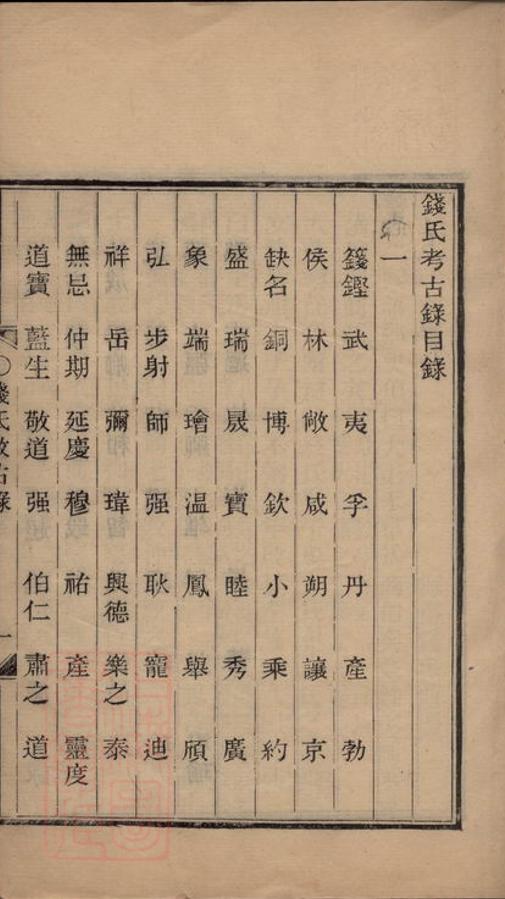 錢氏考古錄目錄
一
籛鏗 武 夷 孚 丹 產 勃
侯 林 敞 咸 朔 讓 京
缺名 銅 博 欽 小 乘 約
盛 瑞 晟 寶 睦 秀 廣
象 端 璯 温 鳳 舉 頎
弘 步射 師 强 耿 寵 迪
祥 岳 彌 瑋 興德 樂之 泰
無忌 仲期 延慶 穆 祐 產 靈度
道寶 藍生 敬道 强 伯仁 肅之 道